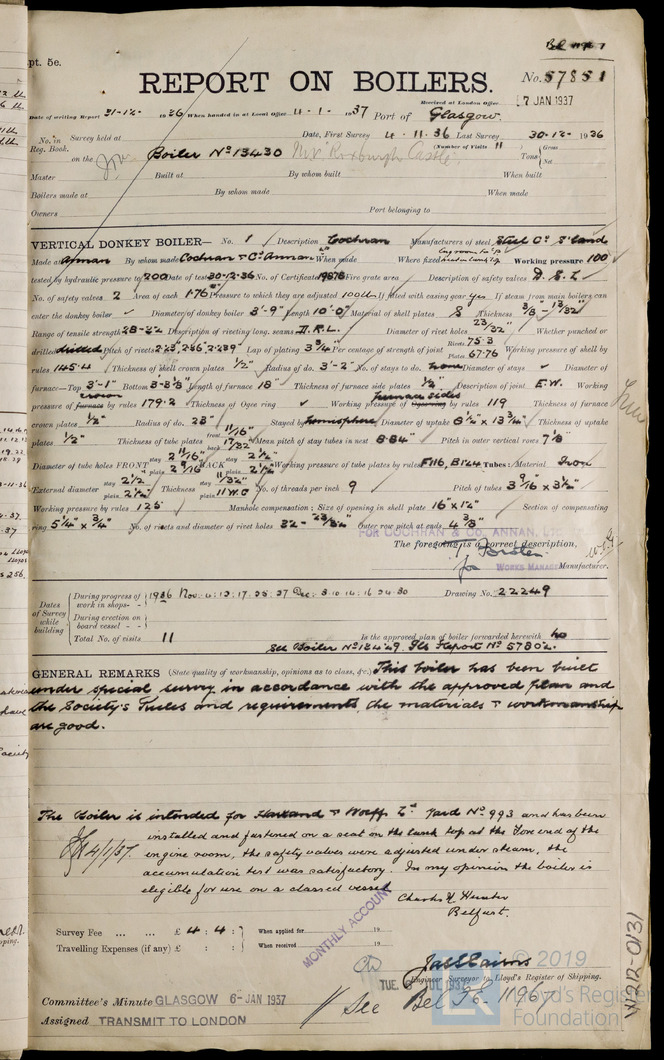 Bel 11967
pt. 5e.
REPORT ON BOILERS.
No. 57851
Received at London Office
7 JAN 1937
Date of writing Report 31-12- 1936 When handed in at Local Office 4-1- 1937 Port of Glasgow
No. in Survey held at Date, First Survey 4-11-36 Last Survey 30-12- 1936
Reg. Book. (Number of Visits 11
on the Boiler No 13430 MV "Roxburgh Castle" Tons Gross Net
Master Built at By whom built When built
Boilers made at By whom made When made
Owners Port belonging to
VERTICAL DONKEY BOILER— No. 1 Description Cochran Manufacturers of steel Steel Co S'land
Made at Annan By whom made Cochran & Co Annan Ltd When made Where fixed Working pressure 100
tested by hydraulic pressure to 200 Date of test 30-12-36 No. of Certificate 19876 Fire grate area Description of safety valves D.S.L
No. of safety valves 2 Area of each 1.76 Pressure to which they are adjusted 100 lb If fitted with easing gear yes If steam from main boilers can
enter the donkey boiler Diameter of donkey boiler 3'-9" Length 10'-0 Material of shell plates S Thickness 3/8 - 13/32"
Range of tensile strength 28-32 Description of riveting long. seams D.R.L. Diameter of rivet holes 23/32" Whether punched or
drilled drilled Pitch of rivets 2.23", 2.86", 2.239" Lap of plating 3 3/4" Per centage of strength of joint Rivets 75.3 Plates 67.76 Working pressure of shell by
rules 145.4 Thickness of shell crown plates 1/2" Radius of do. 3'-2" No. of stays to do. none Diameter of stays Diameter of
furnace—Top 3'-1" Bottom Length of furnace 18" Thickness of furnace side plates Description of joint E.W. Working
crown furnace sides
pressure of furnace by rules 179.2 Thickness of Ogee ring Working pressure of Ogee ring by rules 119 Thickness of furnace
crown plates 1/2" Radius of do. 23" Stayed by hemisphere Diameter of uptake Thickness of uptake
plates 1/2" Thickness of tube plates front 11/16" back 17/32" Mean pitch of stay tubes in nest 8.84" Pitch in outer vertical rows 7 1/8"
Diameter of tube holes FRONT stay 2 11/16" plain 2 9/16" BACK stay 2 1/2" plain 2 1/2" Working pressure of tube plates by rules F116, B124 Tubes: Material Iron
External diameter stay 2 1/2 plain 2 1/2" Thickness stay 11/32" plain 11 W.G No. of threads per inch 9 Pitch of tubes 3 9/16 x 3 1/2"
Working pressure by rules 125 Manhole compensation: Size of opening in shell plate 16" x 12" Section of compensating
ring 5 1/4" x 3/4" No. of rivets and diameter of rivet holes 32 - 23/32 Outer row pitch at ends 4 3/8"
FOR COCHRAN & CO. ANNAN, LTD
The foregoing is a correct description,
WORKS MANAGER Manufacturer.
Dates of Survey while building
During progress of work in shops- - 1936 Nov. 4:13:17:25:27 Dec: 3.10.14.16.24.30 Drawing No. 22249
During erection on board vessel - -
Total No. of visits 11 Is the approved plan of boiler forwarded herewith no
See Boiler No 13429. Gls Report No 57802.
GENERAL REMARKS (State quality of workmanship, opinions as to class, &c.) This boiler has been built
under special survey in accordance with the approved plan and
the Society's Rules and requirements, the materials & workmanship
are good.
The Boiler is intended for Harland & Wolff Ld Yard No 993 and has been
installed and fastened on a seat on the tank top at the fore end of the
4/1/37. engine room, the safety valves were adjusted under steam, the
accumulation test was satisfactory. In my opinion the boiler is
eligible for use on a classed vessel
Charles Hunter
Belfast.
Survey Fee ... ... £ 4 : 4 : When applied for 19
Travelling Expenses (if any) £ : : When received 19
MONTHLY ACCOUNT
Jas Cairns
Engineer Surveyor to Lloyd's Register of Shipping.
TUE. 6 JUL 1937
Committee's Minute GLASGOW 6- JAN 1937
Assigned TRANSMIT TO LONDON
See Bel F.E. 11967
© 2019
Lloyd's Register
Foundation
W212-0131